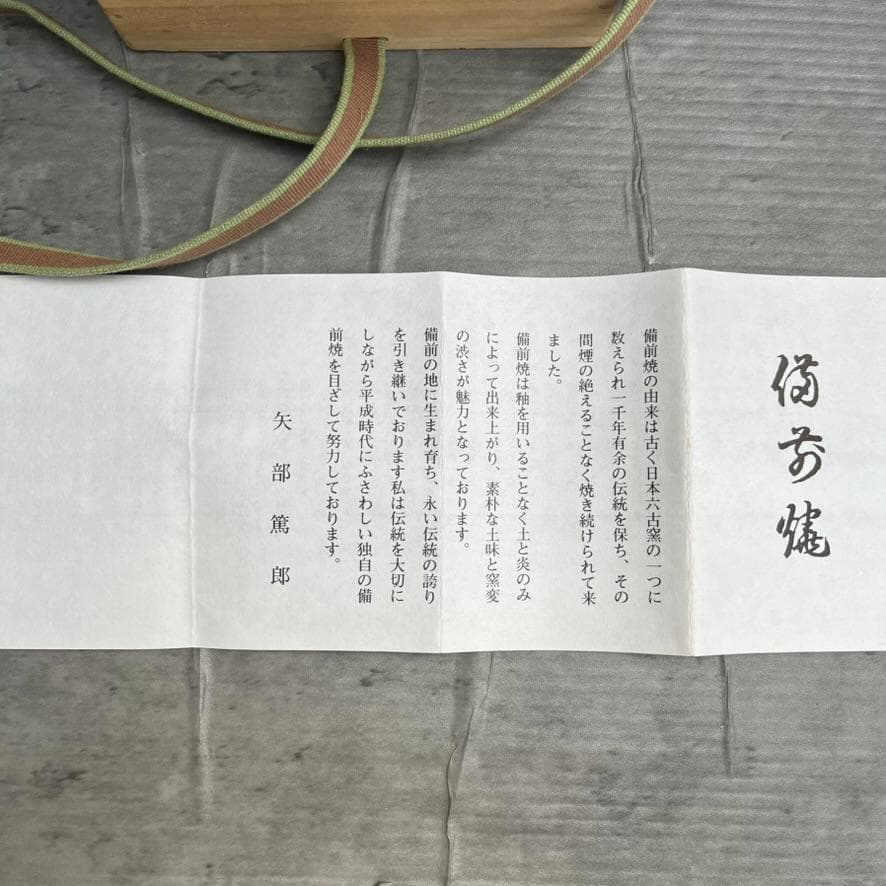 備前焼
備前焼の由来は古く日本六古窯の一つに
数えられ一千年有余の伝統を保ち、その
間煙の絶えることなく焼き続けられて来
ました。
備前焼は釉を用いることなく土と炎のみ
によって出来上がり、素朴な土味と窯変
の渋さが魅力となっております。
備前の地に生まれ育ち、永い伝統の誇り
を引き継いでおります私は伝統を大切に
しながら平成時代にふさわしい独自の備
前焼を目ざして努力しております。
矢部篤郎